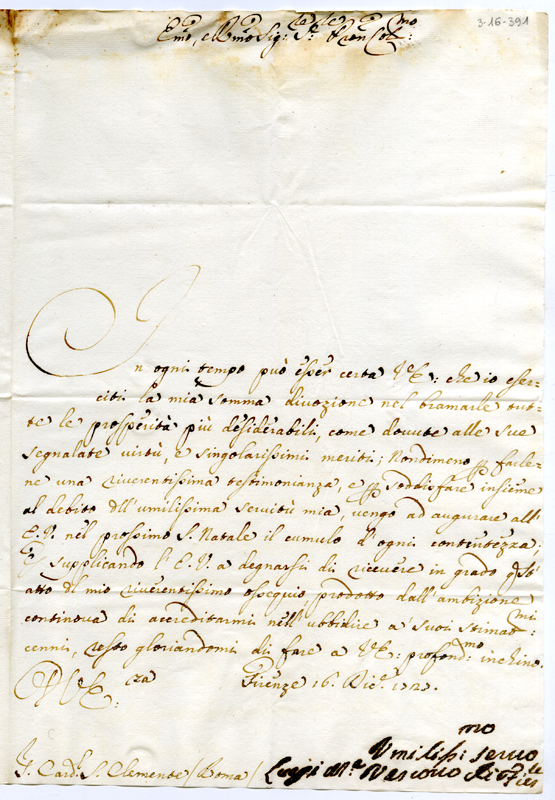 3-16-391
Emo, e Rmo Sig: Pron Col:mo
In ogni tempo può esser certa V.E: che io eser-
citi la mia somma divozione nel bramarle tut-
te le prosperità più desiderabili, come dovute alle sue
segnalate virtù, e singolarissimi meriti; Nondimeno p farle-
ne una riverentissima testimonianza, e p soddisfare insieme
al debito dll'umilissima servitù mia, vengo ad augurare all'
E.V. nel prossimo S. Natale il cumulo d'ogni contentezza;
E supplicando l'E.V. a degnarsi di ricevere in grado qsto'
atto dl mio riverentissimo ossequio prodotto dall'ambizione
continova di accreditarmi nell'ubbidire a' suoi stimatmi:
cenni, resto gloriandomi di fare a V.E: profondmo: inchino.
D V.E:za Firenze 16. Dice.
Umiliss:mo servo
S. Card. S. Clemente / Roma / Luigi Ma Vescovo di